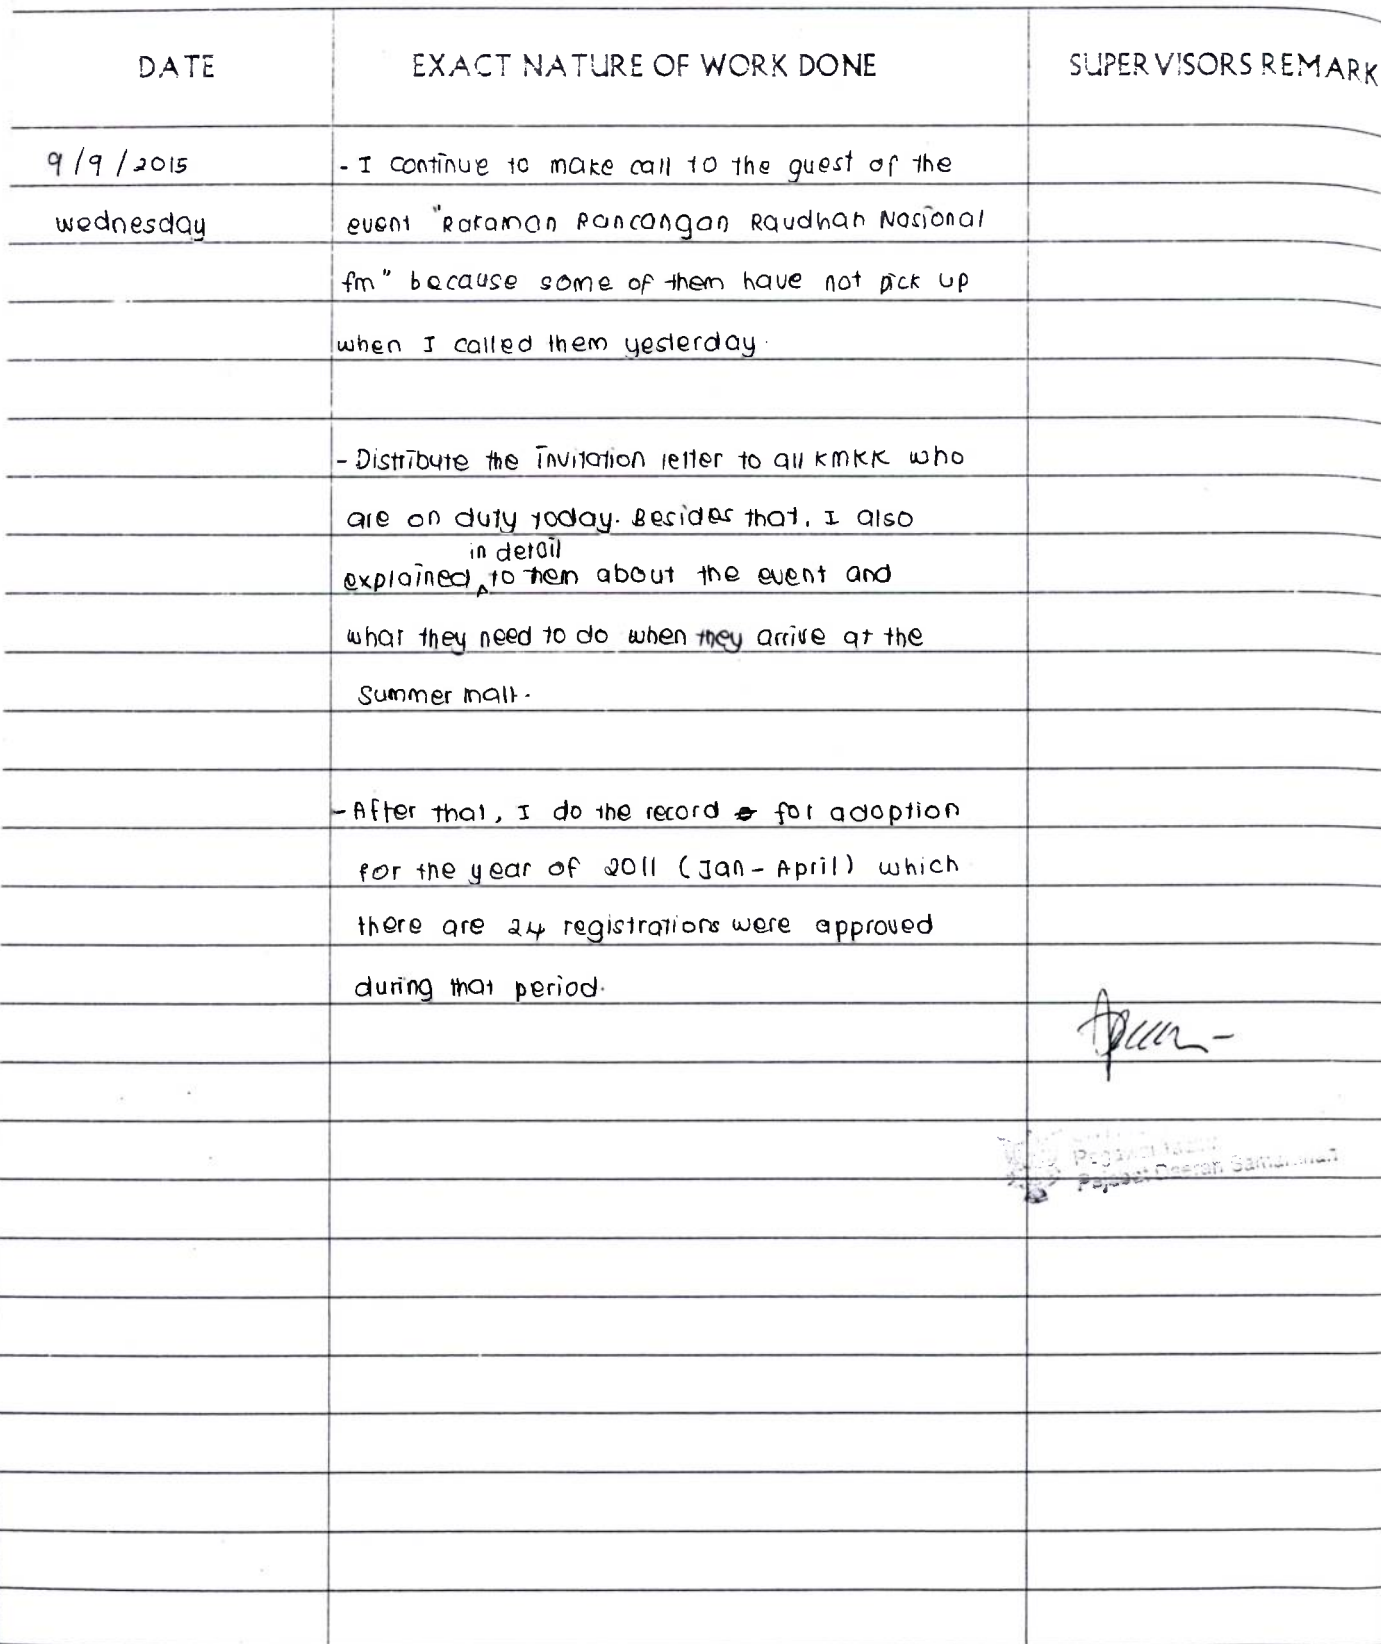 DATE
EXACT NATURE OF WORK DONE
SUPERVISORS REMARK
9/9/2015
wednesday
- I continue to make call to the guest of the
event "Rakaman Rancangan Raudhah Nasional
fm" because some of them have not pick up
when I called them yesterday.
- Distribute the invitation letter to all KMKK who
are on duty today. Besides that, I also
in detail
explained to them about the event and
what they need to do when they arrive at the
Summer mall.
- After that, I do the record for adoption
for the year of 2011 (Jan - April) which
there are 24 registrations were approved
during that period.
Pejabat Daerah Samarahan